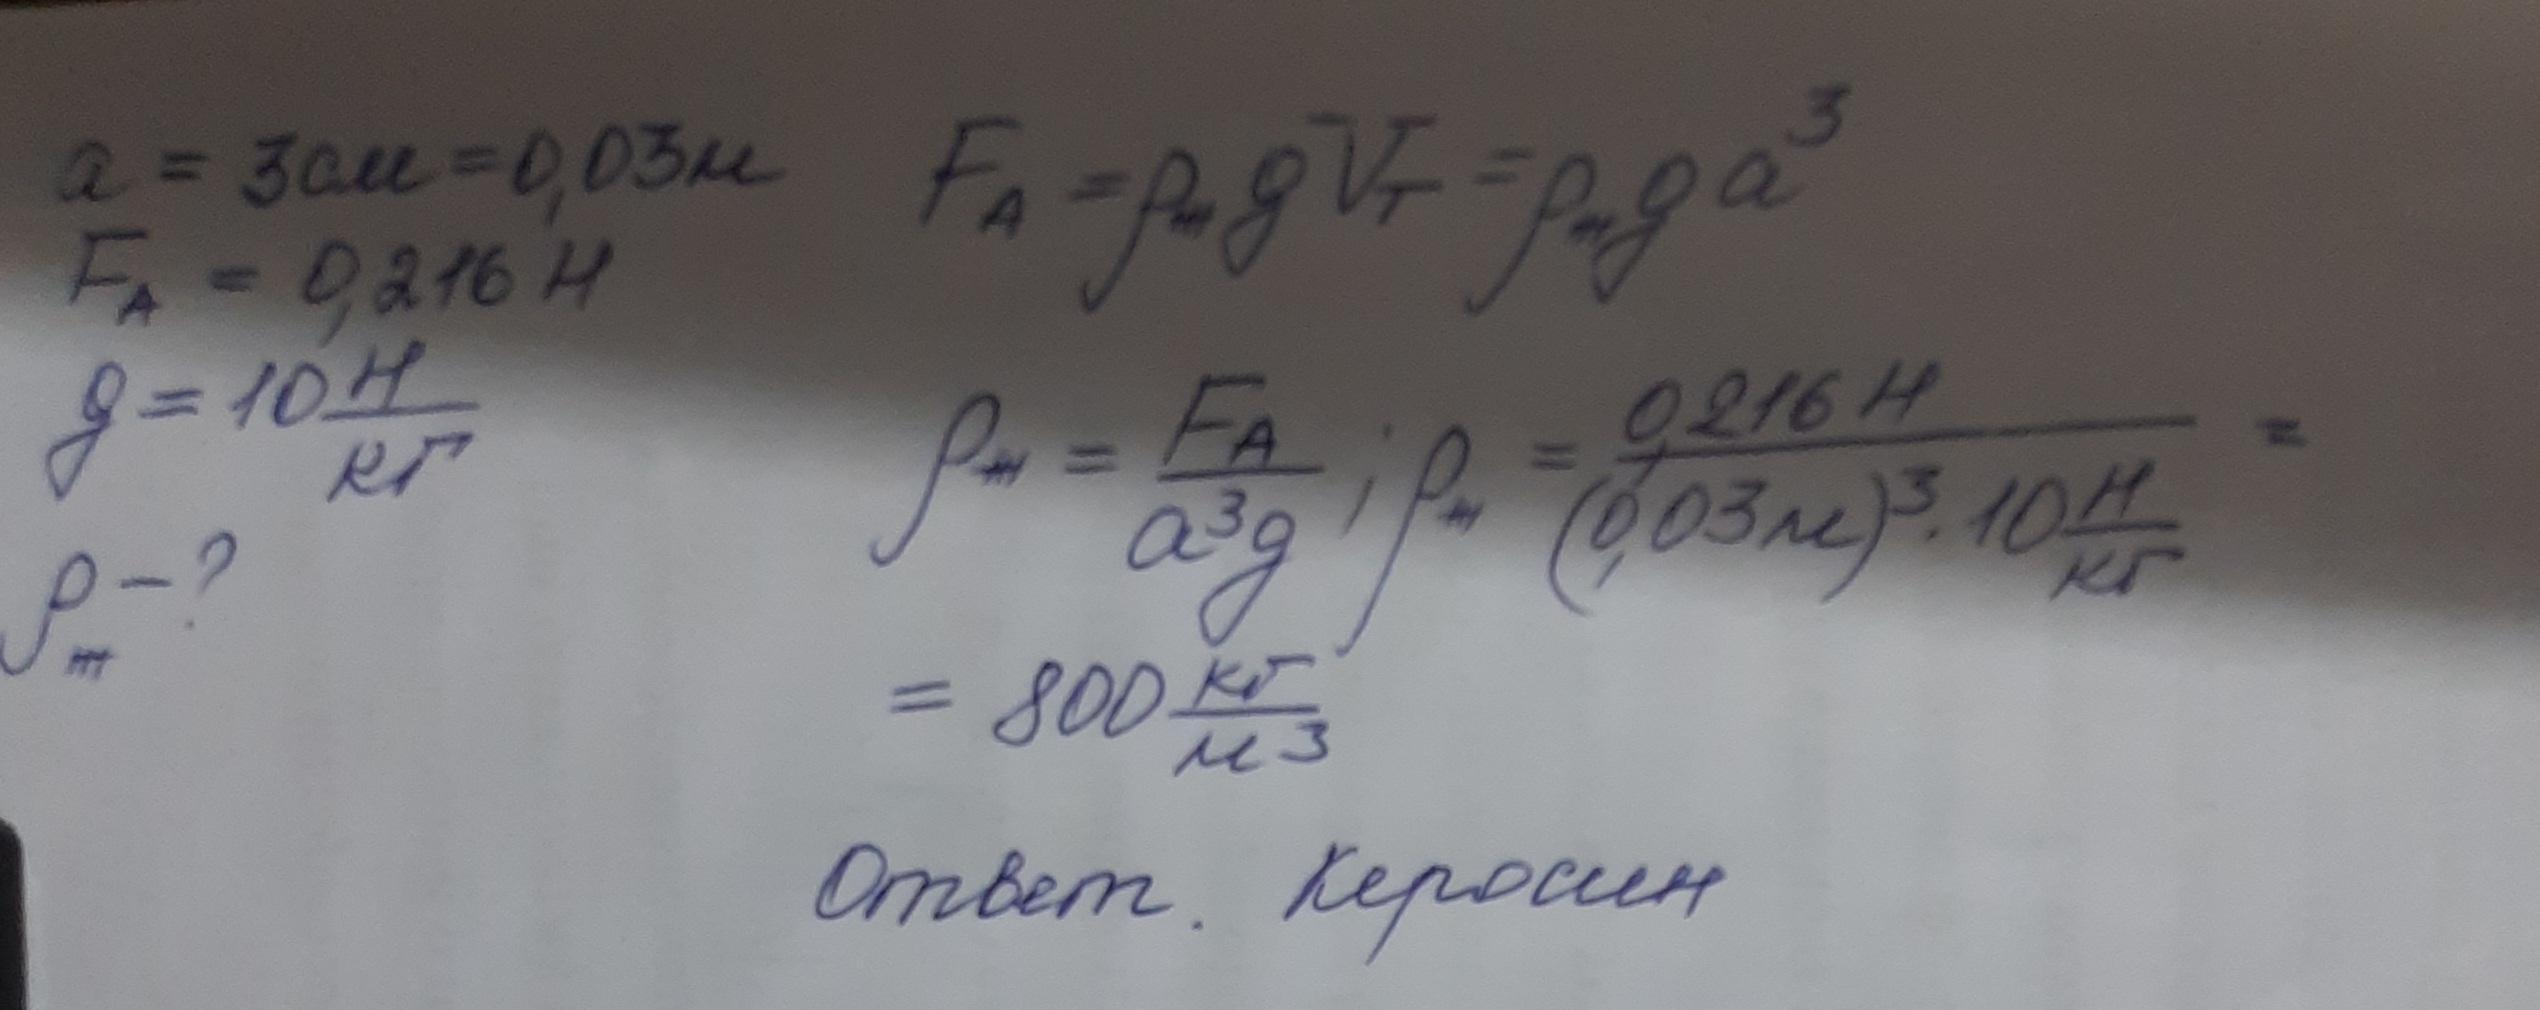 a = 3см = 0,03м
F_A = 0,216 Н
g = 10 Н/кг
ρ_ж - ?
F_A = ρ_ж g V_T = ρ_ж g a³
ρ_ж = F_A/(a³g); ρ_ж = 0,216 Н/((0,03м)³·10 Н/кг) =
= 800 кг/м³
Ответ. Керосин